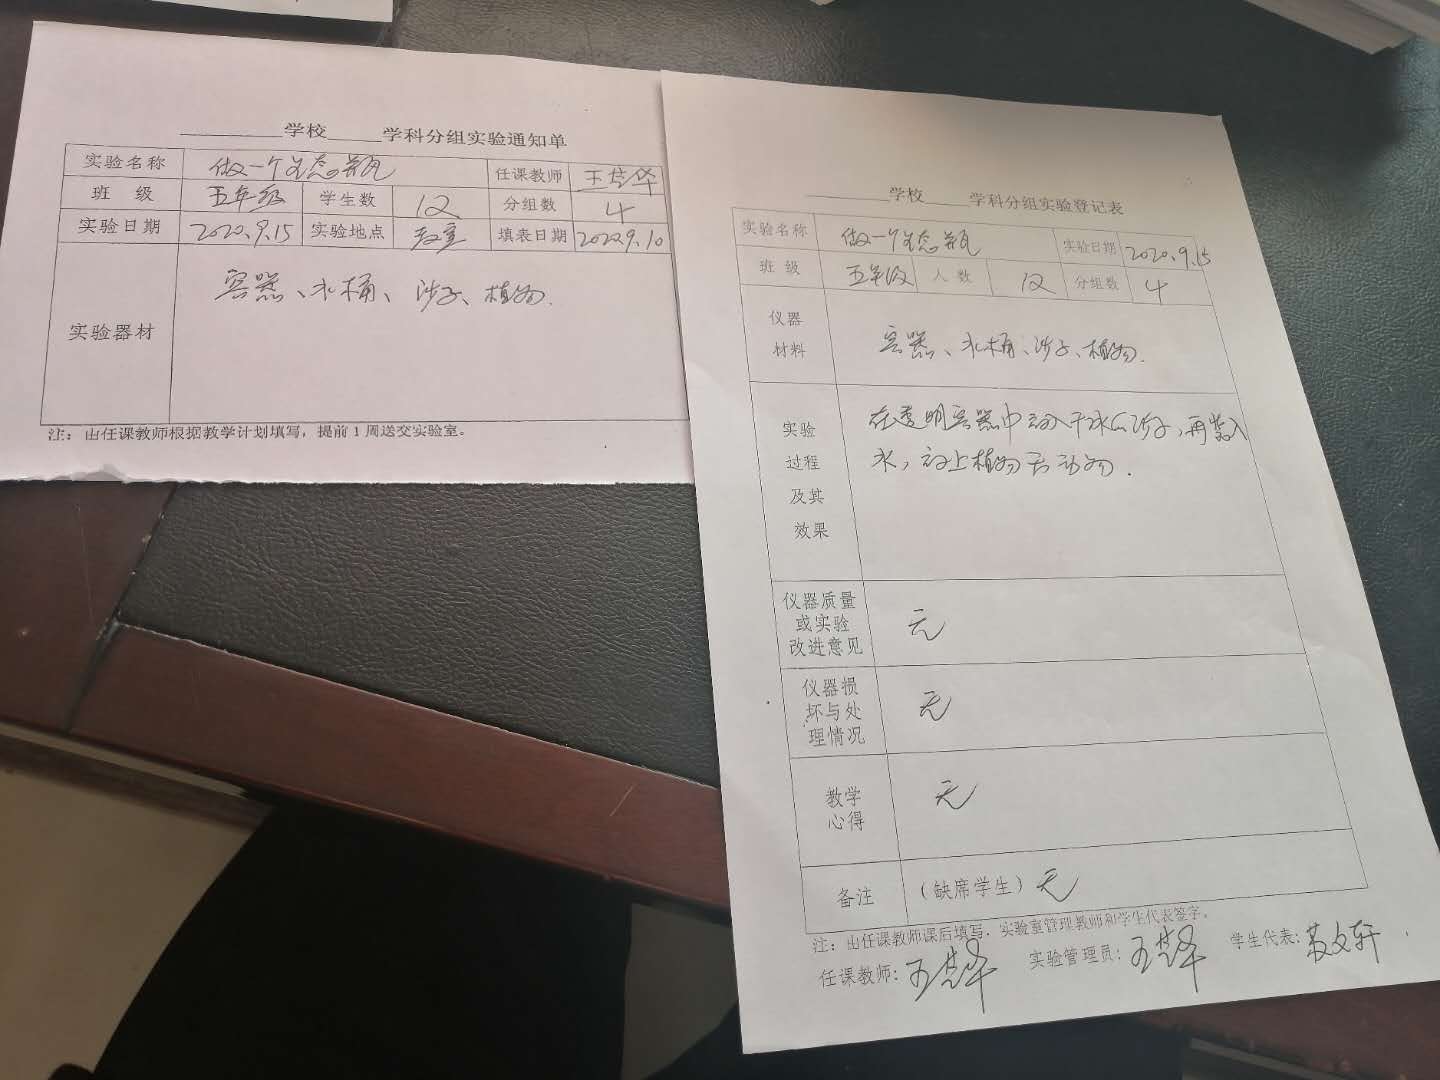 ________学校____学科分组实验通知单
实验名称 做一个生态瓶 任课教师 王楚华
班 级 五年级 学生数 12 分组数 4
实验日期 2020.9.15 实验地点 教室 填表日期 2020.9.10
实验器材 容器、水桶、沙子、植物.
注：由任课教师根据教学计划填写，提前1周送交实验室。
________学校____学科分组实验登记表
实验名称 做一个生态瓶 实验日期 2020.9.15
班 级 五年级 人 数 12 分组数 4
仪器
材料
容器、水桶、沙子、植物.
实验
过程
及其
效果
在透明容器中放入干净沙子，再装入
水，放上植物和动物.
仪器质量
或实验
改进意见
无
仪器损
坏与处
理情况
无
教学
心得
无
备注 （缺席学生）无
注：由任课教师课后填写，实验室管理教师和学生代表签字。
任课教师：王楚华 实验管理员：王楚华 学生代表：黄文轩